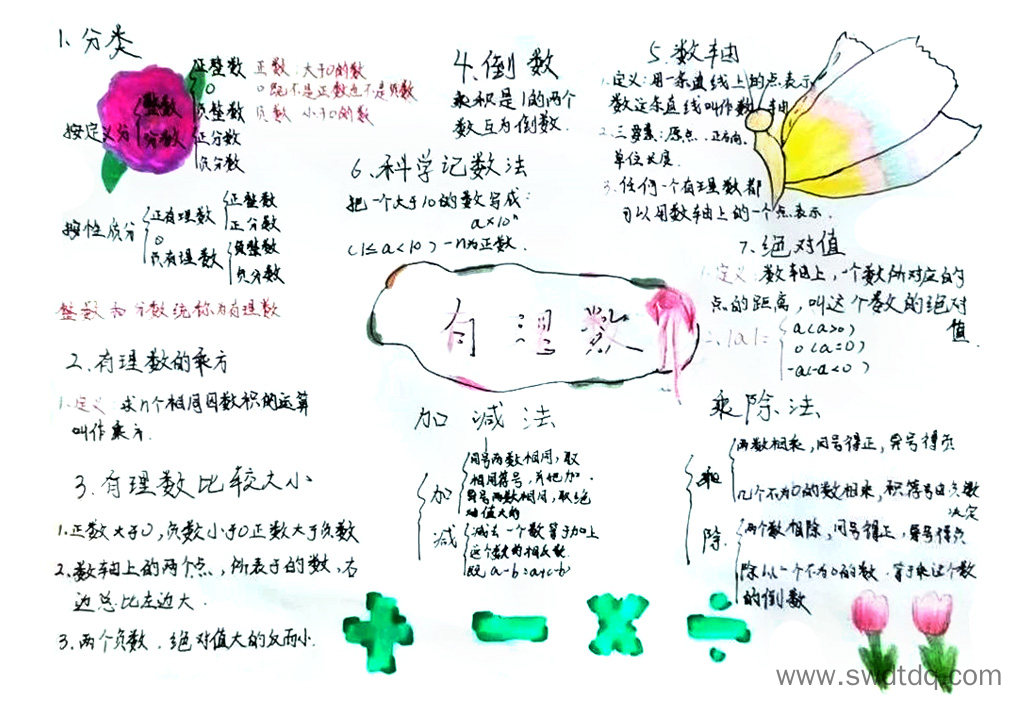 1、分类
按定义分
整数
分数
正整数
0
负整数
正分数
负分数
正数：大于0的数
0既不是正数也不是负数
负数 小于0的数
按性质分
正有理数
0
负有理数
正整数
正分数
负整数
负分数
整数和分数统称为有理数
2、有理数的乘方
1.定义：求n个相同因数积的运算
叫作乘方.
3、有理数比较大小
1.正数大于0,负数小于0正数大于负数
2.数轴上的两个点,所表示的数,右
边总比左边大.
3.两个负数.绝对值大的反而小.
4.倒数
乘积是1的两个
数互为倒数.
6、科学记数法
把一个大于10的数写成:
a×10ⁿ
(1≤a<10)-n为正数.
有理数
加减法
加
同号两数相同,取
相同符号,并把加.
异号两数相同,取绝
对值大的
减
减去一个数等于加上
这个数的相反数.
既a-b=a+(-b)
5.数轴
1.定义:用一条直线上的点表示
数这条直线叫作数轴
2.三要素:原点.正方向.
单位长度.
3.任何一个有理数都
可以用数轴上的一个点表示.
7.绝对值
1.定义:数轴上,一个数所对应的
点的距离,叫这个数的绝对
值.
2、|a|=
a(a>0)
0(a=0)
-a(-a<0)
乘除法
乘
两数相乘,同号得正,异号得负
几个不为0的数相乘,积符号由负数
决定
除.
两个数相除,同号得正,异号得负
除以一个不为0的数.等于乘这个数
的倒数
www.swdtdq.com